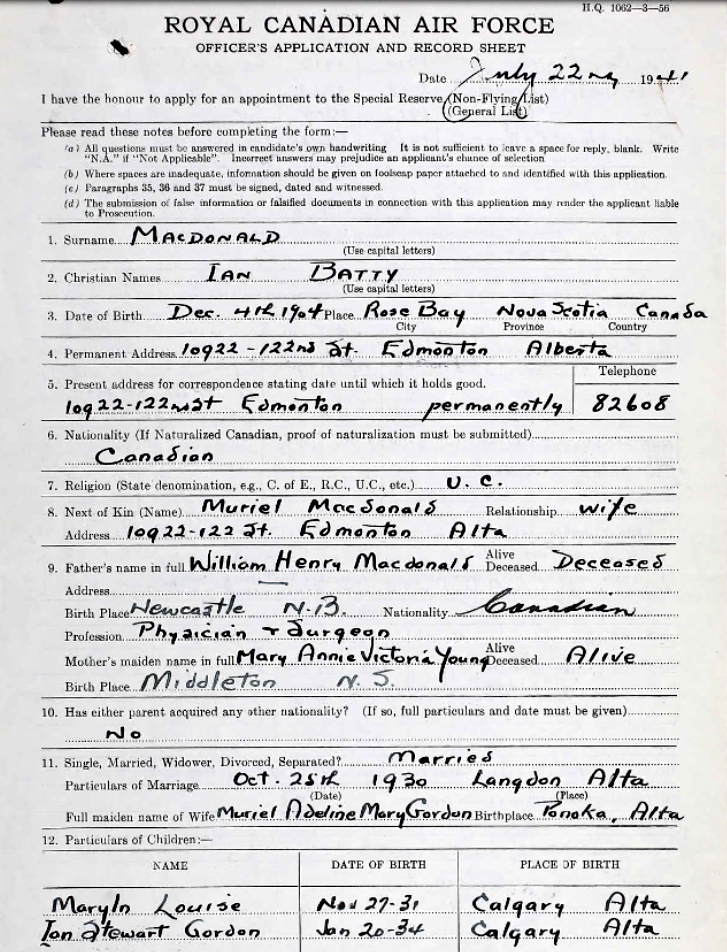 H.Q. 1062—3—56
ROYAL CANADIAN AIR FORCE
OFFICER'S APPLICATION AND RECORD SHEET
Date July 22nd 1941
I have the honour to apply for an appointment to the Special Reserve (Non-Flying List)
(General List)
Please read these notes before completing the form:—
(a) All questions must be answered in candidate's own handwriting It is not sufficient to leave a space for reply, blank. Write
"N.A." if "Not Applicable". Incorrect answers may prejudice an applicant's chance of selection
(b) Where spaces are inadequate, information should be given on foolscap paper attached to and identified with this application.
(c) Paragraphs 35, 36 and 37 must be signed, dated and witnessed.
(d) The submission of false information or falsified documents in connection with this application may render the applicant liable
to Prosecution.
1. Surname MACDONALD
(Use capital letters)
2. Christian Names IAN BATTY
(Use capital letters)
3. Date of Birth Dec. 4th 1904 Place Rose Bay Nova Scotia Canada
City Province Country
4. Permanent Address 10922-122nd St. Edmonton Alberta
5. Present address for correspondence stating date until which it holds good. Telephone
10922-122nd St Edmonton permanently 82608
6. Nationality (If Naturalized Canadian, proof of naturalization must be submitted)
Canadian
7. Religion (State denomination, e.g., C. of E., R.C., U.C., etc.) U.C.
8. Next of Kin (Name) Muriel Macdonald Relationship wife
Address 10922-122 St. Edmonton Alta
9. Father's name in full William Henry Macdonald Alive Deceased Deceased
Address
Birth Place Newcastle N.B. Nationality Canadian
Profession Physician & Surgeon
Mother's maiden name in full Mary Annie Victoria Young Alive Deceased Alive
Birth Place Middleton N.S.
10. Has either parent acquired any other nationality? (If so, full particulars and date must be given)
No
11. Single, Married, Widower, Divorced, Separated? Married
Particulars of Marriage Oct. 25th 1930 Langdon Alta
(Date) (Place)
Full maiden name of Wife Muriel Adeline Mary Gordon Birthplace Ponoka, Alta
12. Particulars of Children:—
NAME DATE OF BIRTH PLACE OF BIRTH
Maryln Louise Nov 27-31 Calgary Alta
Ian Stewart Gordon Jan 20-34 Calgary Alta